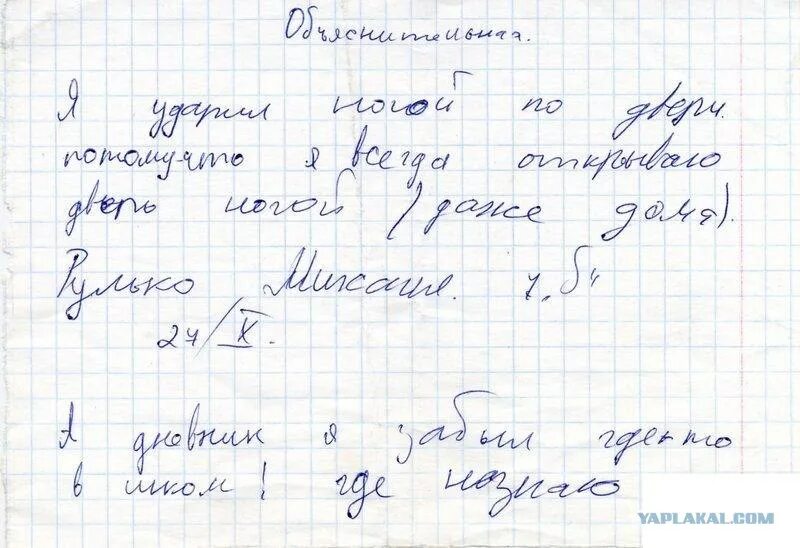 Объяснительная.
Я ударил ногой по двери.
потому-что я всегда открываю
дверь ногой (даже дома).
Рулько Михаил. 7 „Б“
27/X.
А дневник я забыл где-то
в школ! где незнаю
YAPLAKAL.COM